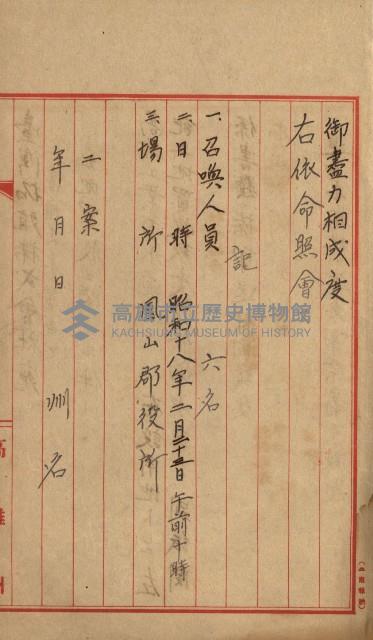 御盡力相成度
右依命照會
記
一、召喚人員 六名
二、日時 昭和十八年二月二十五日午前十時
三、場所 鳳山郡役所
二案
年月日 州名
高雄州
高雄市立歷史博物館
KAOHSIUNG MUSEUM OF HISTORY